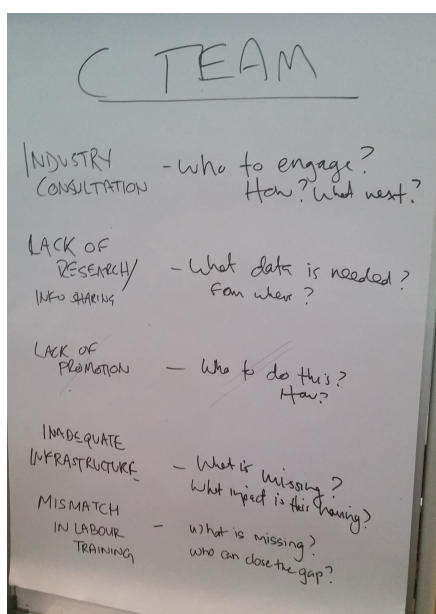 C TEAM
INDUSTRY CONSULTATION - Who to engage?
How? What next?
LACK OF RESEARCH/ INFO SHARING - What data is needed?
From where?
LACK OF PROMOTION - Who to do this?
How?
INADEQUATE INFRASTRUCTURE - What is missing?
What impact is this having?
MISMATCH IN LABOUR TRAINING - What is missing?
Who can close the gap?